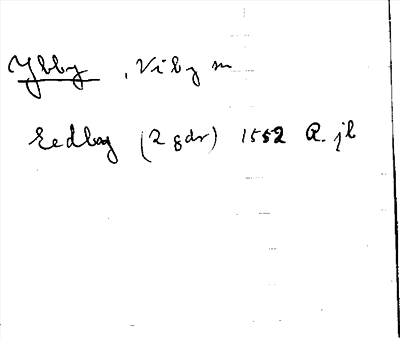 Ybby , Viby sn
Eedbøy (2 gdr) 1552 R. jb